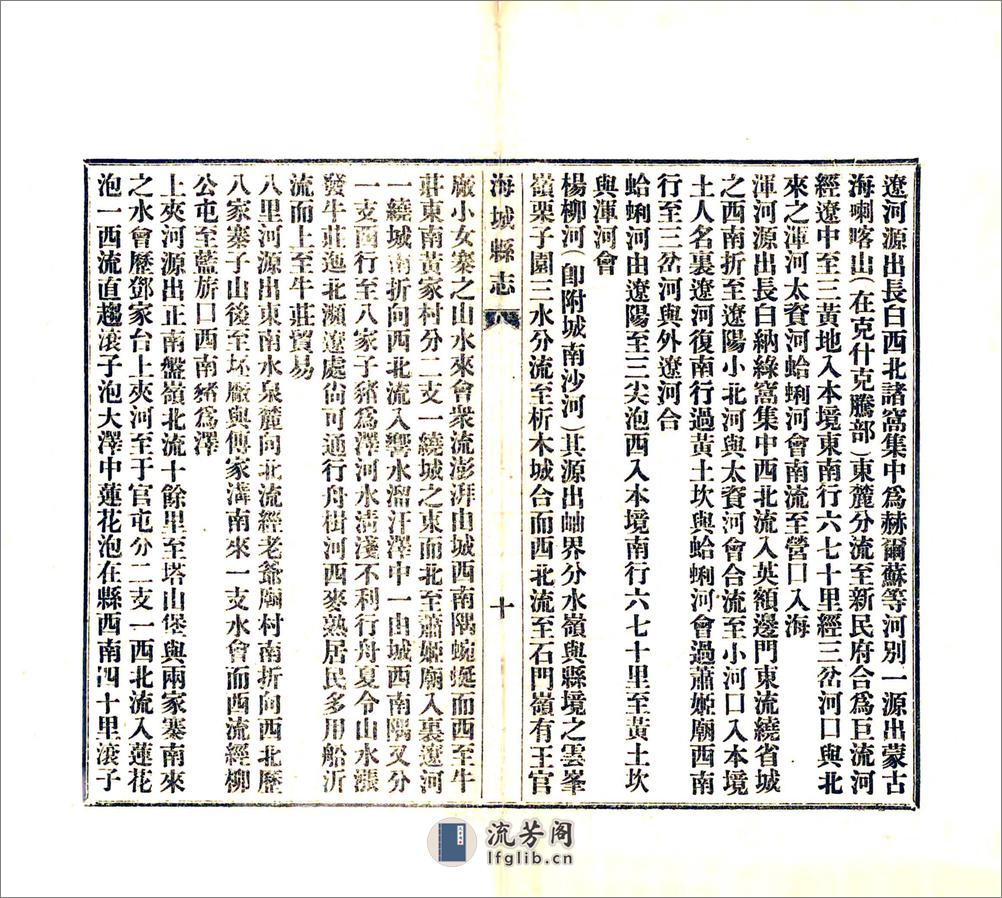 遼河源出長白西北諸窩集中爲赫爾蘇等河別一源出蒙古
海喇喀山(在克什克騰部)東麓分流至新民府合爲巨流河
經遼中至三黃地入本境東南行六七十里經三岔河口與北
來之渾河太資河蛤蜊河會南流至營口入海
渾河源出長白納綠窩集中西北流入英額邊門東流繞省城
之西南折至遼陽小北河與太資河會合流至小河口入本境
土人名裏遼河復南行過黃土坎與蛤蜊河會過蕭姬廟西南
行至三岔河與外遼河合
蛤蜊河由遼陽至三尖泡西入本境南行六七十里至黃土坎
與渾河會
楊柳河(即附城南沙河)其源出岫界分水嶺與縣境之雲峯
嶺栗子園三水分流至析木城合而西北流至石門嶺有王官
海城縣志
十
廠小女寨之山水來會衆流澎湃由城西南隅蜿蜒而西至牛
莊東南黃家村分二支一繞城之東而北至蕭姬廟入裏遼河
一繞城南折向西北流入響水溜汙澤中一由城西南隅又分
一支西行至八家子豬爲澤河水清淺不利行舟夏令山水漲
發牛莊迤北瀕遼處尙可通行舟樹河西麥熟居民多用船沂
流而上至牛莊貿易
八里河源出東南水泉麓向北流經老爺廟村南折向西北歷
八家寨子山後至坯廠與傅家溝南來一支水會而西流經柳
公屯至藍旂口西南豬爲澤
上夾河源出正南盤嶺北流十餘里至塔山堡與兩家寨南來
之水會歷鄧家台上夾河至于官屯分二支一西北流入蓮花
泡一西流直趨滾子泡大澤中蓮花泡在縣西南四十里滾子
流芳阁
lfglib.cn